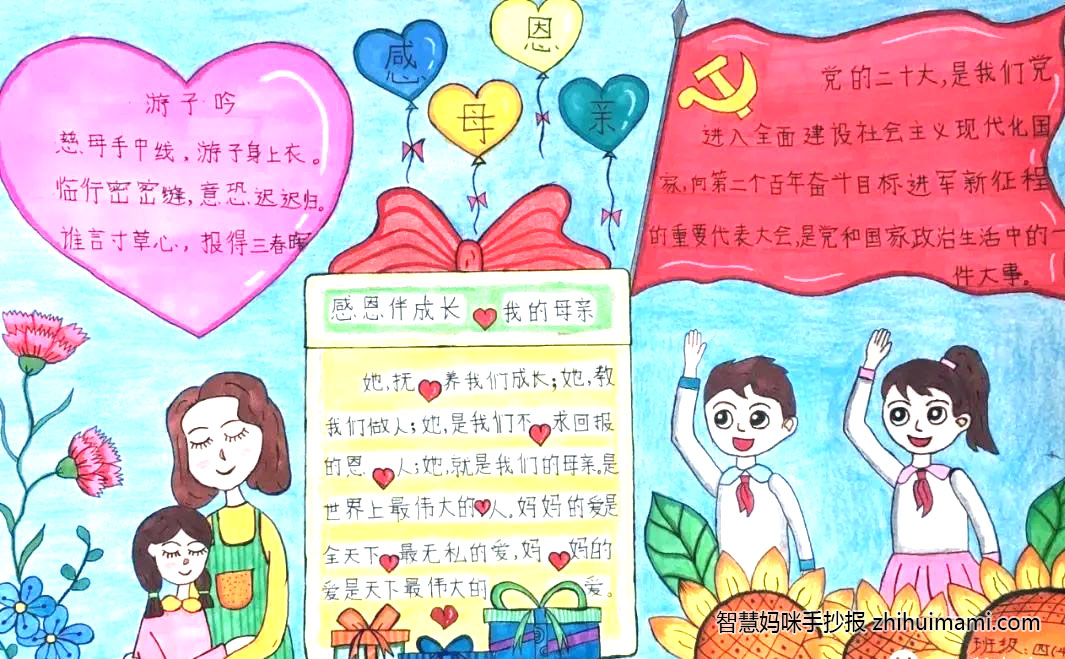 感恩母亲
游子吟
慈母手中线,游子身上衣。
临行密密缝,意恐迟迟归。
谁言寸草心,报得三春晖
党的二十大,是我们党
进入全面建设社会主义现代化国
家,向第二个百年奋斗目标进军新征程
的重要代表大会,是党和国家政治生活中的一
件大事。
感恩伴成长 我的母亲
她,抚养我们成长;她,教
我们做人;她,是我们不求回报
的恩人;她,就是我们的母亲。是
世界上最伟大的人。妈妈的爱是
全天下最无私的爱,妈妈的
爱是天下最伟大的爱。
智慧妈咪手抄报 zhihuimami.com
班级:四(4